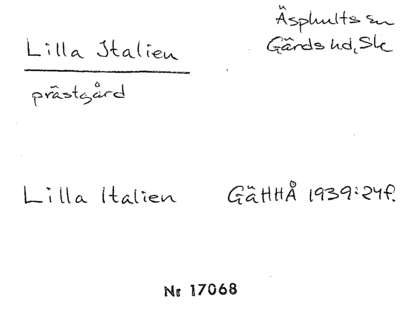 Äsphults sn
Lilla Italien
Gärds hd, Sk
prästgård
Lilla Italien GäHHÅ 1939:24f.
Nr 17068